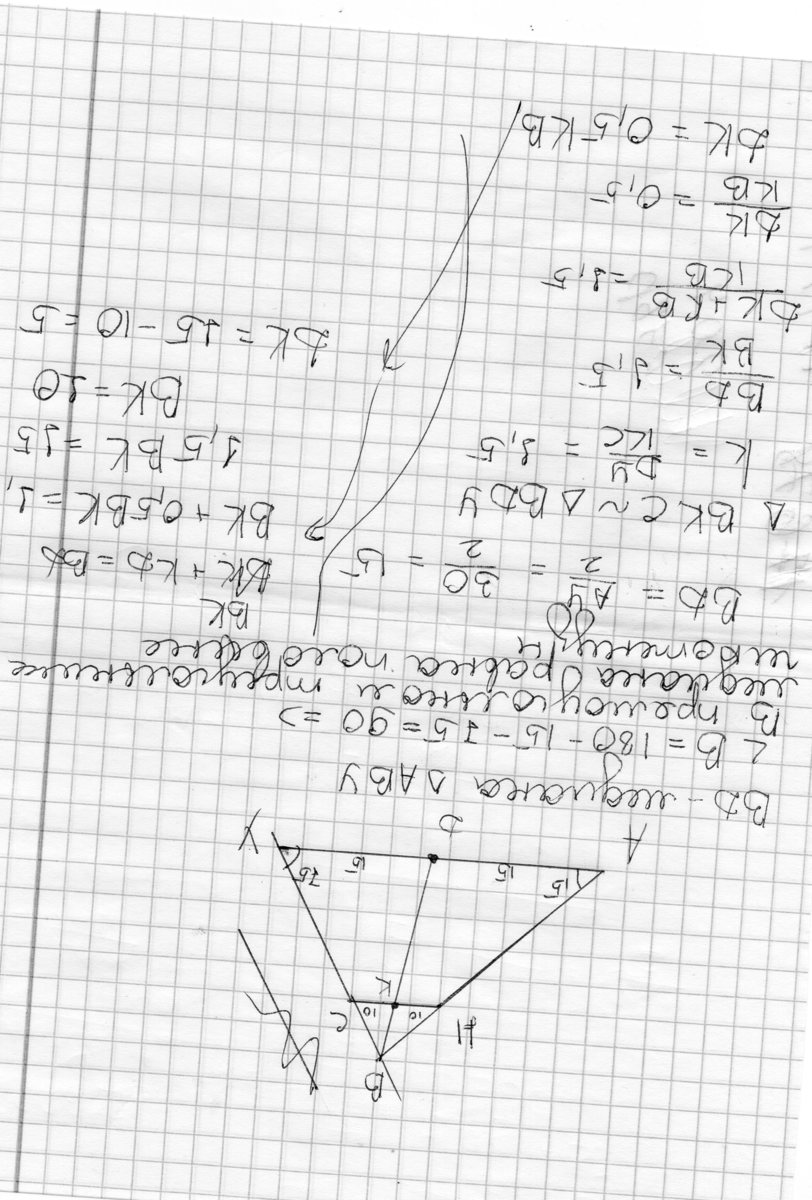 B
H
C
10
10
K
15
75
15
15
A
D
У
BD - медиана △ ABУ
∠ B = 180 - 15 - 75 = 90 =>
В прямоугольном треугольнике
медиана равна половине
гипотенузы
BD = AУ/2 = 30/2 = 15
△ BKC ~ △ BDУ
K = DУ/KC = 1,5
BD/BK = 1,5
DK + KB/KB = 1,5
DK/KB = 0,5
DK = 0,5 KB
BK
BK + KD = BD
BK + 0,5 BK = 1,
1,5 BK = 15
BK = 10
DK = 15 - 10 = 5